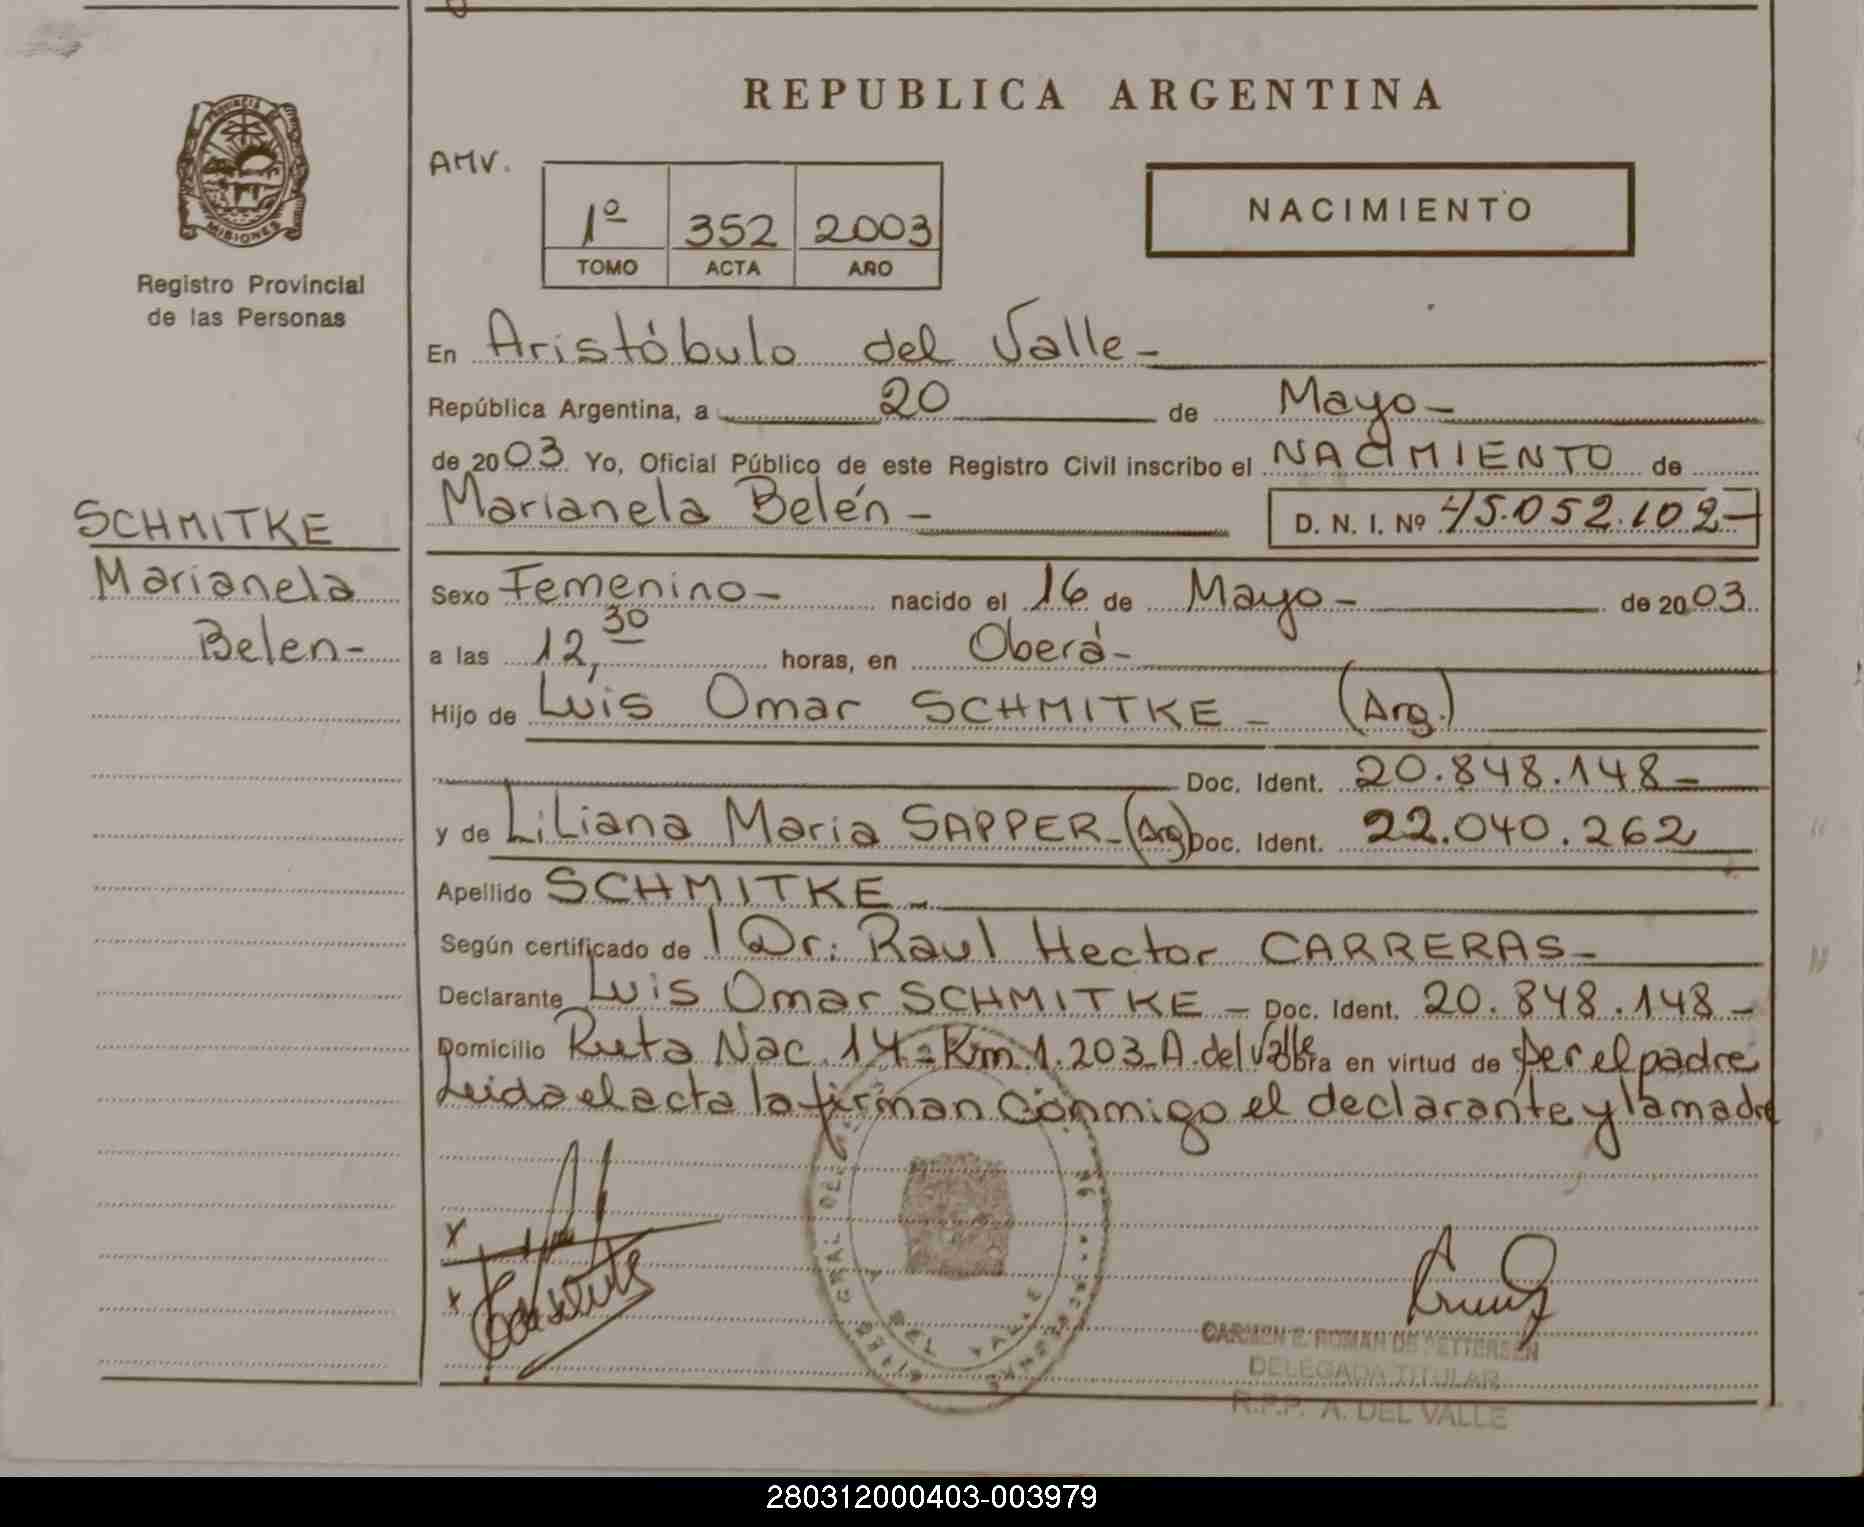 REPUBLICA ARGENTINA
AMV.
1º 352 2003
TOMO ACTA AÑO
NACIMIENTO
PROVINCIA DE
MISIONES
Registro Provincial
de las Personas
SCHMITKE
Marianela
Belen-
En Aristóbulo del Valle-
República Argentina, a 20 de Mayo-
de 2003. Yo, Oficial Público de este Registro Civil inscribo el NACIMIENTO de
Marianela Belén - D. N. I. Nº 45.052.102-
Sexo Femenino- nacido el 16 de Mayo- de 2003.
a las 12,30 horas, en Oberá-
Hijo de Luis Omar SCHMITKE- (Arg.)
Doc. Ident. 20.848.148-
y de Liliana Maria SAPPER-(Arg) Doc. Ident. 22.040.262
Apellido SCHMITKE-
Según certificado de Dr: Raul Hector CARRERAS-
Declarante Luis Omar SCHMITKE- Doc. Ident. 20.848.148-
Domicilio Ruta Nac. 14-Km 1.203-A.del Valle Obra en virtud de ser el padre
Leida el acta la firman conmigo el declarante y la madre
x
x
DEL VALLE
CARMEN E. ROMAN DE PETTERSEN
DELEGADA TITULAR
R.P.P. A. DEL VALLE
280312000403-003979